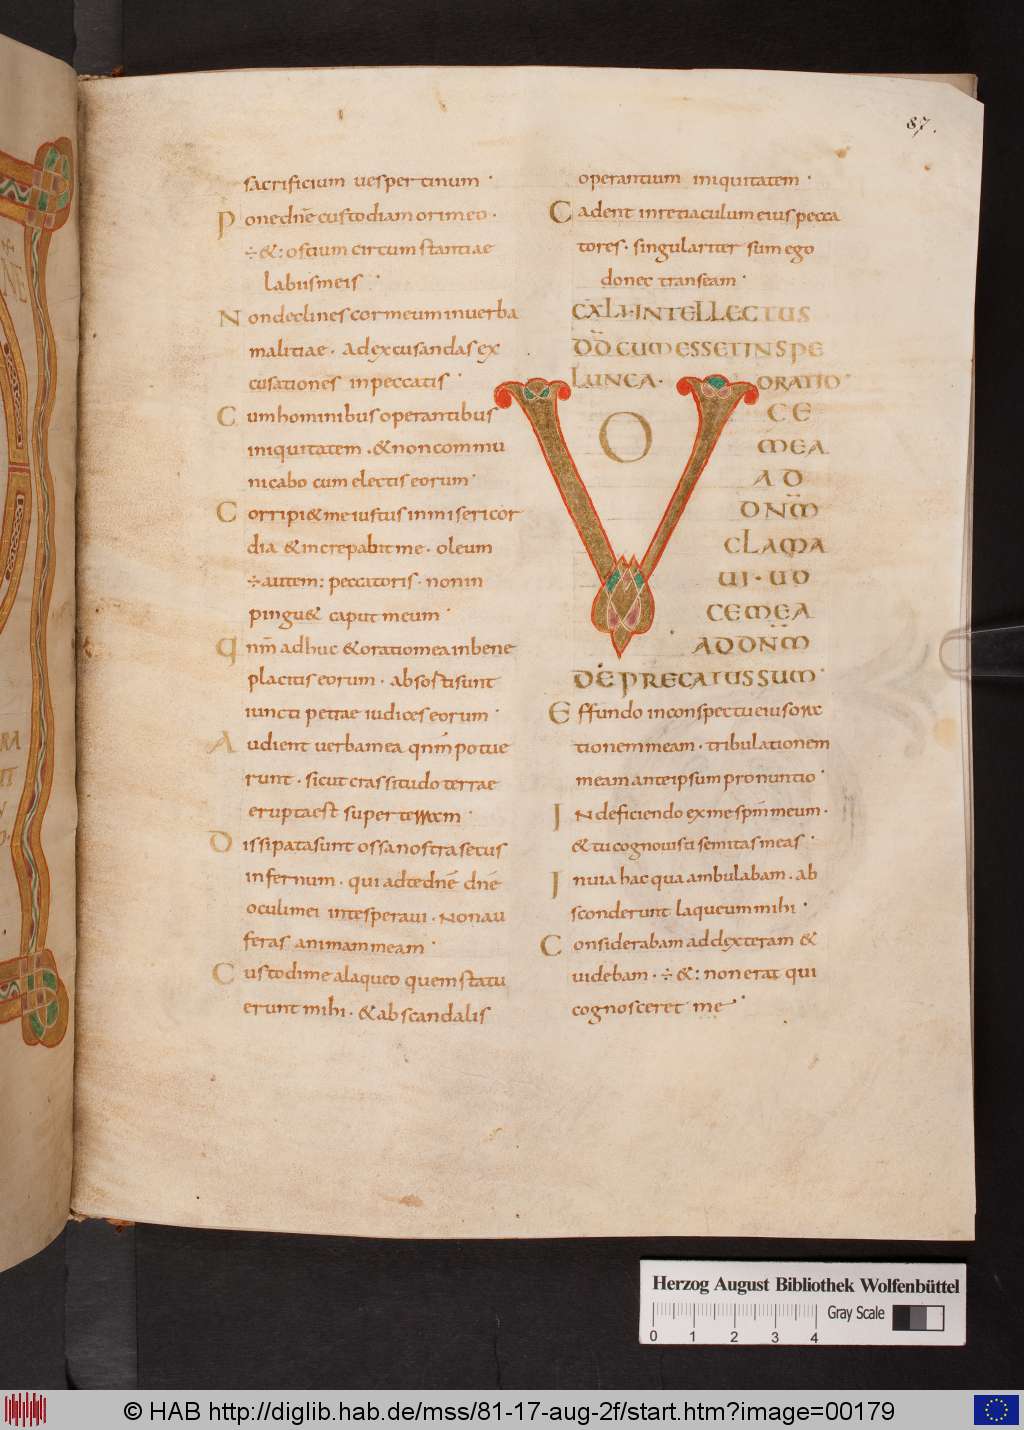 87.
sacrificium uespertinum·
Pone dñe custodiam ori meo·
÷&: ostium circumstantiae
labiis meis·
Non declines cor meum in uerba
malitiae· ad excusandas ex
cusationes in peccatis·
Cum hominibus operantibus
iniquitatem· & non commu
nicabo cum electis eorum·
Corripi& me iustus in misericor
dia & increpabit me· oleum
÷autem: peccatoris· non in
pingu& caput meum·
Qnm̄ adhuc & oratio mea in bene
placitis eorum· absosti sunt
iuncti petrae iudices eorum·
Audient uerba mea qnm̄ potue
runt· sicut crassitudo terrae
erupta est super terram·
Dissipata sunt ossa nostra secus
infernum· qui ad te dnē dnē
oculi mei in te speraui· Non au
feras animam meam·
Custodi me a laqueo quem statu
erunt mihi· & ab scandalis
operantium iniquitatem·
Cadent in retiaculum eius pecca
tores· singulariter sum ego
donec transeam·
CXLI· INTELLECTUS
DD̄ CUM ESSET IN SPE
LUNCA· ORATIO·
VOCE
MEA
AD
DNM̄
CLAMA
UI· UO
CE MEA
AD DNM̄
DEPRECATUS SUM·
Effundo in conspectu eius orā
tionem meam· tribulationem
meam ante ipsum pronuntio·
IN deficiendo ex me spm̄ meum·
& tu cognouisti semitas meas·
In uia hac qua ambulabam· ab
sconderunt laqueum mihi·
Considerabam ad dexteram &
uidebam· ÷&: non erat qui
cognosceret me·
Herzog August Bibliothek Wolfenbüttel
Gray Scale
0 1 2 3 4
© HAB http://diglib.hab.de/mss/81-17-aug-2f/start.htm?image=00179